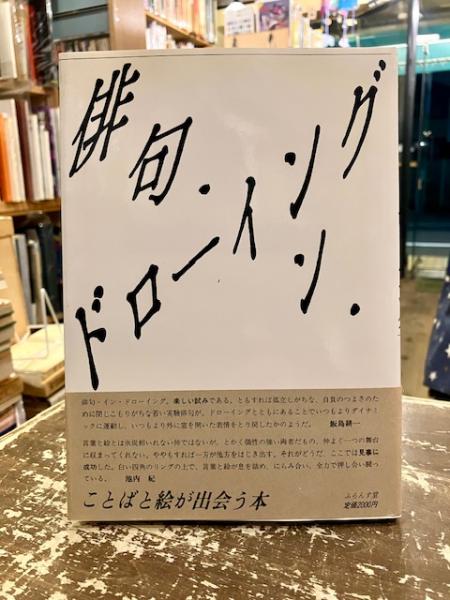 俳句・イン・
ドローイング
俳句・イン・ドローイング。楽しい試みである。ともすれば孤立しがちな、自負のつよさのた
めに閉じこもりがちな若い実験俳句が、ドローイングとともにあることでいつもよりダイナミ
ックに運動し、いつもより外に窓を開いた表情をとり戻したかのようだ。 飯島耕一
言葉と絵とは氷炭相いれない仲ではないが、とかく個性の強い両者だもの、仲よく一つの舞台
に収まってくれない。ややもすれば一方が他方をはじき出す。それがどうだ、ここでは見事に
成功した。白い四角のリングの上で、言葉と絵が息を詰め、にらみ合い、全力で押し合い闘っ
ている。 池内 紀
ことばと絵が出会う本
ふらんす堂
定価2000円